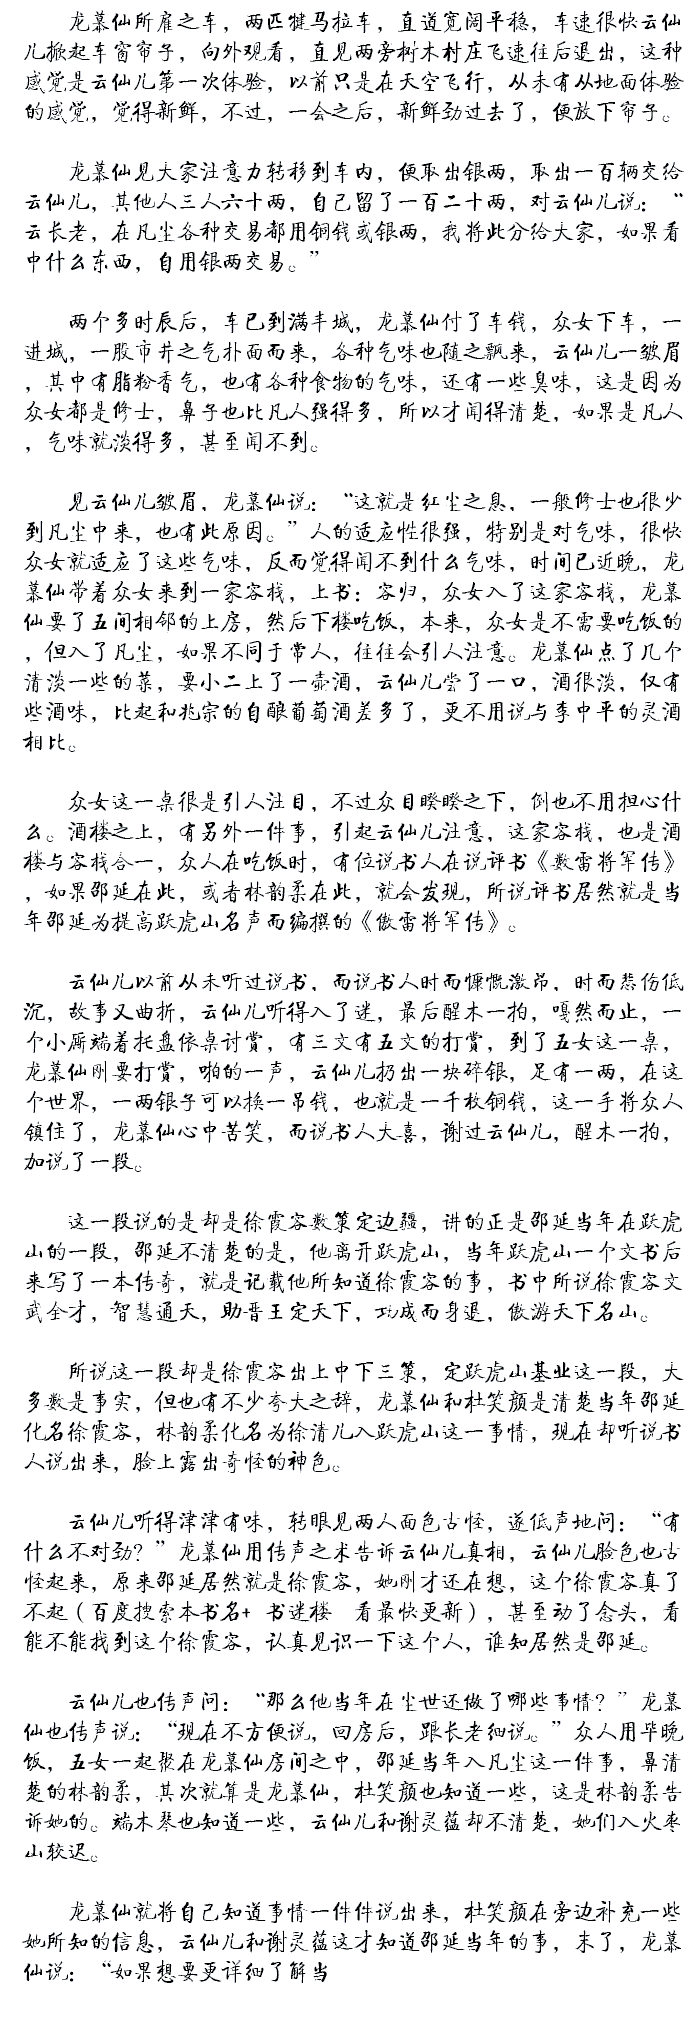 龙慕仙所雇之车，两匹犍马拉车，直道宽阔平稳，车速很快云仙
儿掀起车窗帘子，向外观看，直见两旁树木村庄飞速往后退出，这种
感觉是云仙儿第一次体验，以前只是在天空飞行，从未有从地面体验
的感觉，觉得新鲜，不过，一会之后，新鲜劲过去了，便放下帘子。
龙慕仙见大家注意力转移到车内，便取出银两，取出一百辆交给
云仙儿，其他人三人六十两，自己留了一百二十两，对云仙儿说：“
云长老，在凡尘各种交易都用铜钱或银两，我将此分给大家，如果看
中什么东西，自用银两交易。”
两个多时辰后，车已到满丰城，龙慕仙付了车钱，众女下车，一
进城，一股市井之气扑面而来，各种气味也随之飘来，云仙儿一皱眉
，其中有脂粉香气，也有各种食物的气味，还有一些臭味，这是因为
众女都是修士，鼻子也比凡人强得多，所以才闻得清楚，如果是凡人
，气味就淡得多，甚至闻不到。
见云仙儿皱眉，龙慕仙说：“这就是红尘之息，一般修士也很少
到凡尘中来，也有此原因。”人的适应性很强，特别是对气味，很快
众女就适应了这些气味，反而觉得闻不到什么气味，时间已近晚，龙
慕仙带着众女来到一家客栈，上书：客归，众女入了这家客栈，龙慕
仙要了五间相邻的上房，然后下楼吃饭，本来，众女是不需要吃饭的
，但入了凡尘，如果不同于常人，往往会引人注意。龙慕仙点了几个
清淡一些的菜，要小二上了一壶酒，云仙儿尝了一口，酒很淡，仅有
些酒味，比起和兆宗的自酿葡萄酒差多了，更不用说与李中平的灵酒
相比。
众女这一桌很是引人注目，不过众目睽睽之下，倒也不用担心什
么。酒楼之上，有另外一件事，引起云仙儿注意，这家客栈，也是酒
楼与客栈合一，众人在吃饭时，有位说书人在说评书《数雷将军传》
，如果邵延在此，或者林韵柔在此，就会发现，所说评书居然就是当
年邵延为提高跃虎山名声而编撰的《傲雷将军传》。
云仙儿以前从未听过说书，而说书人时而慷慨激昂，时而悲伤低
沉，故事又曲折，云仙儿听得入了迷，最后醒木一拍，嘎然而止，一
个小厮端着托盘依桌讨赏，有三文有五文的打赏，到了五女这一桌，
龙慕仙刚要打赏，啪的一声，云仙儿扔出一块碎银，足有一两，在这
个世界，一两银子可以换一吊钱，也就是一千枚铜钱，这一手将众人
镇住了，龙慕仙心中苦笑，而说书人大喜，谢过云仙儿，醒木一拍，
加说了一段。
这一段说的是却是徐霞客数策定边疆，讲的正是邵延当年在跃虎
山的一段，邵延不清楚的是，他离开跃虎山，当年跃虎山一个文书后
来写了一本传奇，就是记载他所知道徐霞客的事，书中所说徐霞客文
武全才，智慧通天，助晋王定天下，功成而身退，傲游天下名山。
所说这一段却是徐霞客出上中下三策，定跃虎山基业这一段，大
多数是事实，但也有不少夸大之辞，龙慕仙和杜笑颜是清楚当年邵延
化名徐霞客，林韵柔化名为徐清儿入跃虎山这一事情，现在却听说书
人说出来，脸上露出奇怪的神色。
云仙儿听得津津有味，转眼见两人面色古怪，遂低声地问：“有
什么不对劲？”龙慕仙用传声之术告诉云仙儿真相，云仙儿脸色也古
怪起来，原来邵延居然就是徐霞客，她刚才还在想，这个徐霞客真了
不起（百度搜索本书名+ 书迷楼 看最快更新），甚至动了念头，看
能不能找到这个徐霞客，认真见识一下这个人，谁知居然是邵延。
云仙儿也传声问：“那么他当年在尘世还做了哪些事情？”龙慕
仙也传声说：“现在不方便说，回房后，跟长老细说。”众人用毕晚
饭，五女一起聚在龙慕仙房间之中，邵延当年入凡尘这一件事，最清
楚的林韵柔，其次就算是龙慕仙，杜笑颜也知道一些，这是林韵柔告
诉她的。端木琴也知道一些，云仙儿和谢灵蕴却不清楚，她们入火枣
山较迟。
龙慕仙就将自己知道事情一件件说出来，杜笑颜在旁边补充一些
她所知的信息，云仙儿和谢灵蕴这才知道邵延当年的事，末了，龙慕
仙说：“如果想要更详细了解当